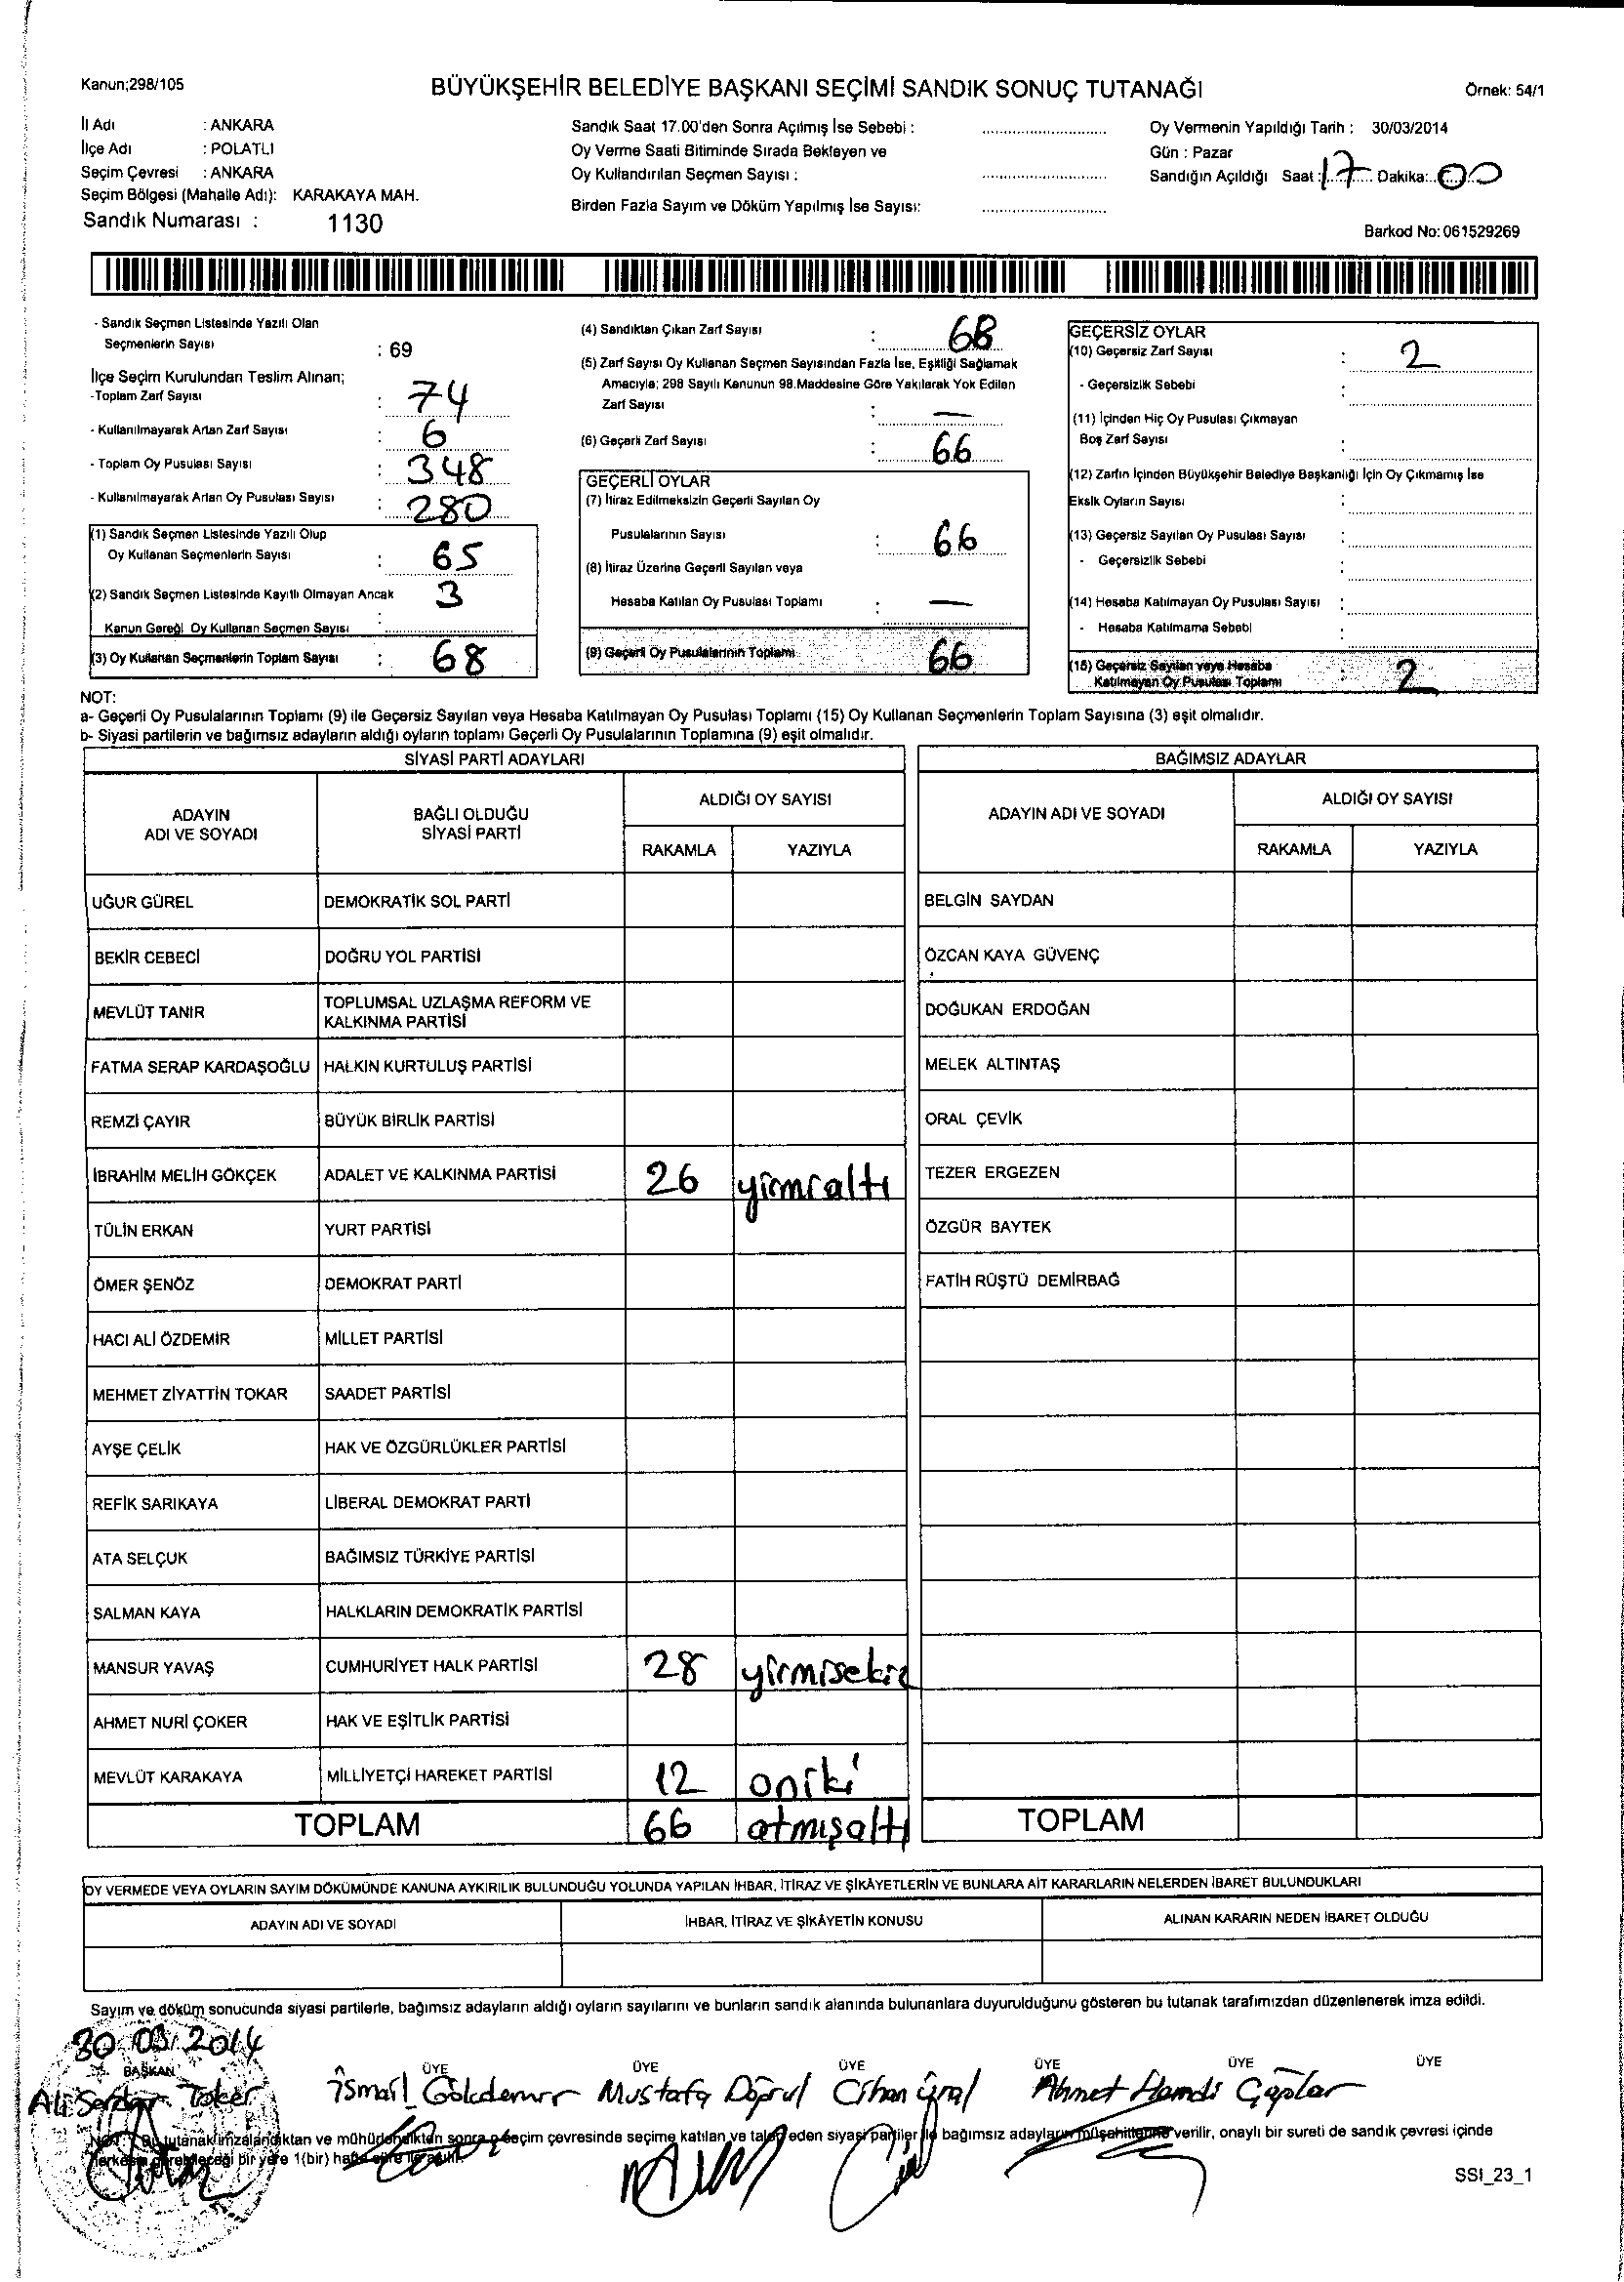 Kanun;298/105
BÜYÜKŞEHİR BELEDİYE BAŞKANI SEÇİMİ SANDIK SONUÇ TUTANAĞI
Örnek: 54/1
İl Adı : ANKARA
İlçe Adı : POLATLI
Seçim Çevresi : ANKARA
Seçim Bölgesi (Mahalle Adı): KARAKAYA MAH.
Sandık Numarası : 1130
Sandık Saat 17.00'den Sonra Açılmış İse Sebebi :
Oy Verme Saati Bitiminde Sırada Bekleyen ve
Oy Kullandırılan Seçmen Sayısı :
Birden Fazla Sayım ve Döküm Yapılmış İse Sayısı:
Oy Vermenin Yapıldığı Tarih : 30/03/2014
Gün : Pazar
Sandığın Açıldığı Saat : 17 Dakika: 00
Barkod No: 061529269
- Sandık Seçmen Listesinde Yazılı Olan
Seçmenlerin Sayısı : 69
İlçe Seçim Kurulundan Teslim Alınan;
-Toplam Zarf Sayısı : 74
- Kullanılmayarak Artan Zarf Sayısı : 6
- Toplam Oy Pusulası Sayısı : 348
- Kullanılmayarak Artan Oy Pusulası Sayısı : 280
(1) Sandık Seçmen Listesinde Yazılı Olup
Oy Kullanan Seçmenlerin Sayısı : 65
(2) Sandık Seçmen Listesinde Kayıtlı Olmayan Ancak
Kanun Gereği Oy Kullanan Seçmen Sayısı : 3
(3) Oy Kullanan Seçmenlerin Toplam Sayısı : 68
(4) Sandıktan Çıkan Zarf Sayısı : 68
(5) Zarf Sayısı Oy Kullanan Seçmen Sayısından Fazla İse, Eşitliği Sağlamak
Amacıyla; 298 Sayılı Kanunun 98.Maddesine Göre Yakılarak Yok Edilen
Zarf Sayısı : —
(6) Geçerli Zarf Sayısı : 66
GEÇERLİ OYLAR
(7) İtiraz Edilmeksizin Geçerli Sayılan Oy
Pusulalarının Sayısı : 66
(8) İtiraz Üzerine Geçerli Sayılan veya
Hesaba Katılan Oy Pusulası Toplamı : —
(9) Geçerli Oy Pusulalarının Toplamı 66
GEÇERSİZ OYLAR
(10) Geçersiz Zarf Sayısı : 2
- Geçersizlik Sebebi :
(11) İçinden Hiç Oy Pusulası Çıkmayan
Boş Zarf Sayısı :
(12) Zarfın İçinden Büyükşehir Belediye Başkanlığı İçin Oy Çıkmamış İse
Eksik Oyların Sayısı :
(13) Geçersiz Sayılan Oy Pusulası Sayısı :
- Geçersizlik Sebebi :
(14) Hesaba Katılmayan Oy Pusulası Sayısı :
- Hesaba Katılmama Sebebi :
(15) Geçersiz Sayılan veya Hesaba
Katılmayan Oy Pusulası Toplamı : 2
NOT:
a- Geçerli Oy Pusulalarının Toplamı (9) ile Geçersiz Sayılan veya Hesaba Katılmayan Oy Pusulası Toplamı (15) Oy Kullanan Seçmenlerin Toplam Sayısına (3) eşit olmalıdır.
b- Siyasi partilerin ve bağımsız adayların aldığı oyların toplamı Geçerli Oy Pusulalarının Toplamına (9) eşit olmalıdır.
SİYASİ PARTİ ADAYLARI
ADAYIN ADI VE SOYADI
BAĞLI OLDUĞU SİYASİ PARTİ
ALDIĞI OY SAYISI
RAKAMLA YAZIYLA
UĞUR GÜREL DEMOKRATİK SOL PARTİ
BEKİR CEBECİ DOĞRU YOL PARTİSİ
MEVLÜT TANIR TOPLUMSAL UZLAŞMA REFORM VE KALKINMA PARTİSİ
FATMA SERAP KARDAŞOĞLU HALKIN KURTULUŞ PARTİSİ
REMZİ ÇAYIR BÜYÜK BİRLİK PARTİSİ
İBRAHİM MELİH GÖKÇEK ADALET VE KALKINMA PARTİSİ 26 yirmialtı
TÜLİN ERKAN YURT PARTİSİ
ÖMER ŞENÖZ DEMOKRAT PARTİ
HACI ALİ ÖZDEMİR MİLLET PARTİSİ
MEHMET ZİYATTİN TOKAR SAADET PARTİSİ
AYŞE ÇELİK HAK VE ÖZGÜRLÜKLER PARTİSİ
REFİK SARIKAYA LİBERAL DEMOKRAT PARTİ
ATA SELÇUK BAĞIMSIZ TÜRKİYE PARTİSİ
SALMAN KAYA HALKLARIN DEMOKRATİK PARTİSİ
MANSUR YAVAŞ CUMHURİYET HALK PARTİSİ 28 yirmisekiz
AHMET NURİ ÇOKER HAK VE EŞİTLİK PARTİSİ
MEVLÜT KARAKAYA MİLLİYETÇİ HAREKET PARTİSİ 12 oniki
TOPLAM 66 atmışaltı
BAĞIMSIZ ADAYLAR
ADAYIN ADI VE SOYADI
ALDIĞI OY SAYISI
RAKAMLA YAZIYLA
BELGİN SAYDAN
ÖZCAN KAYA GÜVENÇ
DOĞUKAN ERDOĞAN
MELEK ALTINTAŞ
ORAL ÇEVİK
TEZER ERGEZEN
ÖZGÜR BAYTEK
FATİH RÜŞTÜ DEMİRBAĞ
TOPLAM
OY VERMEDE VEYA OYLARIN SAYIM DÖKÜMÜNDE KANUNA AYKIRILIK BULUNDUĞU YOLUNDA YAPILAN İHBAR, İTİRAZ VE ŞİKAYETLERİN VE BUNLARA AİT KARARLARIN NELERDEN İBARET BULUNDUKLARI
ADAYIN ADI VE SOYADI
İHBAR, İTİRAZ VE ŞİKÂYETİN KONUSU
ALINAN KARARIN NEDEN İBARET OLDUĞU
Sayım ve döküm sonucunda siyasi partilerle, bağımsız adayların aldığı oyların sayılarını ve bunların sandık alanında bulunanlara duyurulduğunu gösteren bu tutanak tarafımızdan düzenlenerek imza edildi.
30.03.2014
BAŞKAN ÜYE ÜYE ÜYE ÜYE ÜYE ÜYE
Ali Serdar Toker İsmail Gökdemir Mustafa Doğrul Cihan Ünal Ahmet Hamdi Çaplar
NOT : Bu tutanak imzalandıktan ve mühürlendikten sonra o seçim çevresinde seçime katılan ve talep eden siyasi partiler ile bağımsız adayların müşahitlerine verilir, onaylı bir sureti de sandık çevresi içinde
herkesin görebileceği bir yere 1(bir) hafta süre ile asılır.
SSI_23_1